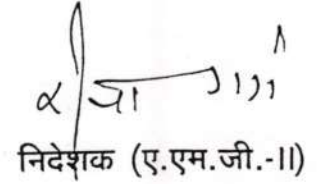 निदेशक (ए.एम.जी.-II)